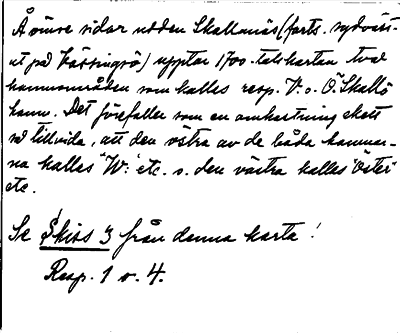 Å ömse sidor udden Skallnäs (forts. sydväst-
ut på Kässingsö) upptar 1700-talskartan två
hamnområden som kallas resp. V. o. Ö. Skallö
hamn. Det förefaller som en omkastning skett
så tillvida, att den östra av de båda hamnar-
na kallas "W." etc. o. den västra kallas "öster"
etc.
Se Skiss 3 från denna karta!
Resp. 1 o. 4.